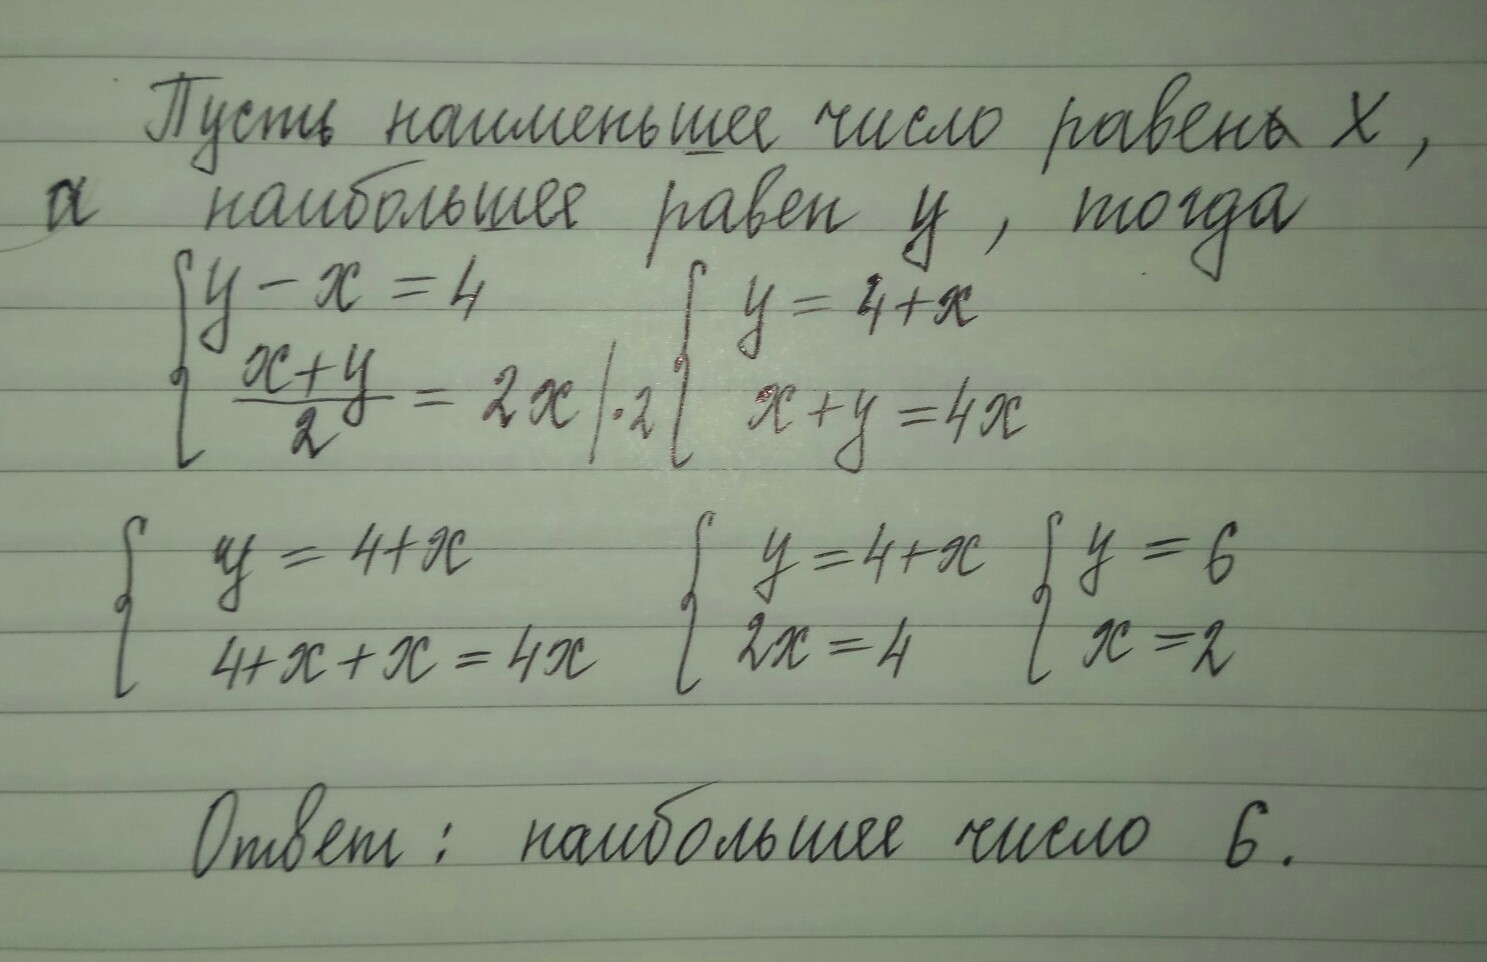 Пусть наименьшее число равен x,
а наибольшее равен y, тогда
{ y - x = 4 { y = 4+x
x+y/2 = 2x |·2 x+y = 4x
{ y = 4+x { y = 4+x { y = 6
4+x+x = 4x 2x = 4 x = 2
Ответ: наибольшее число 6.